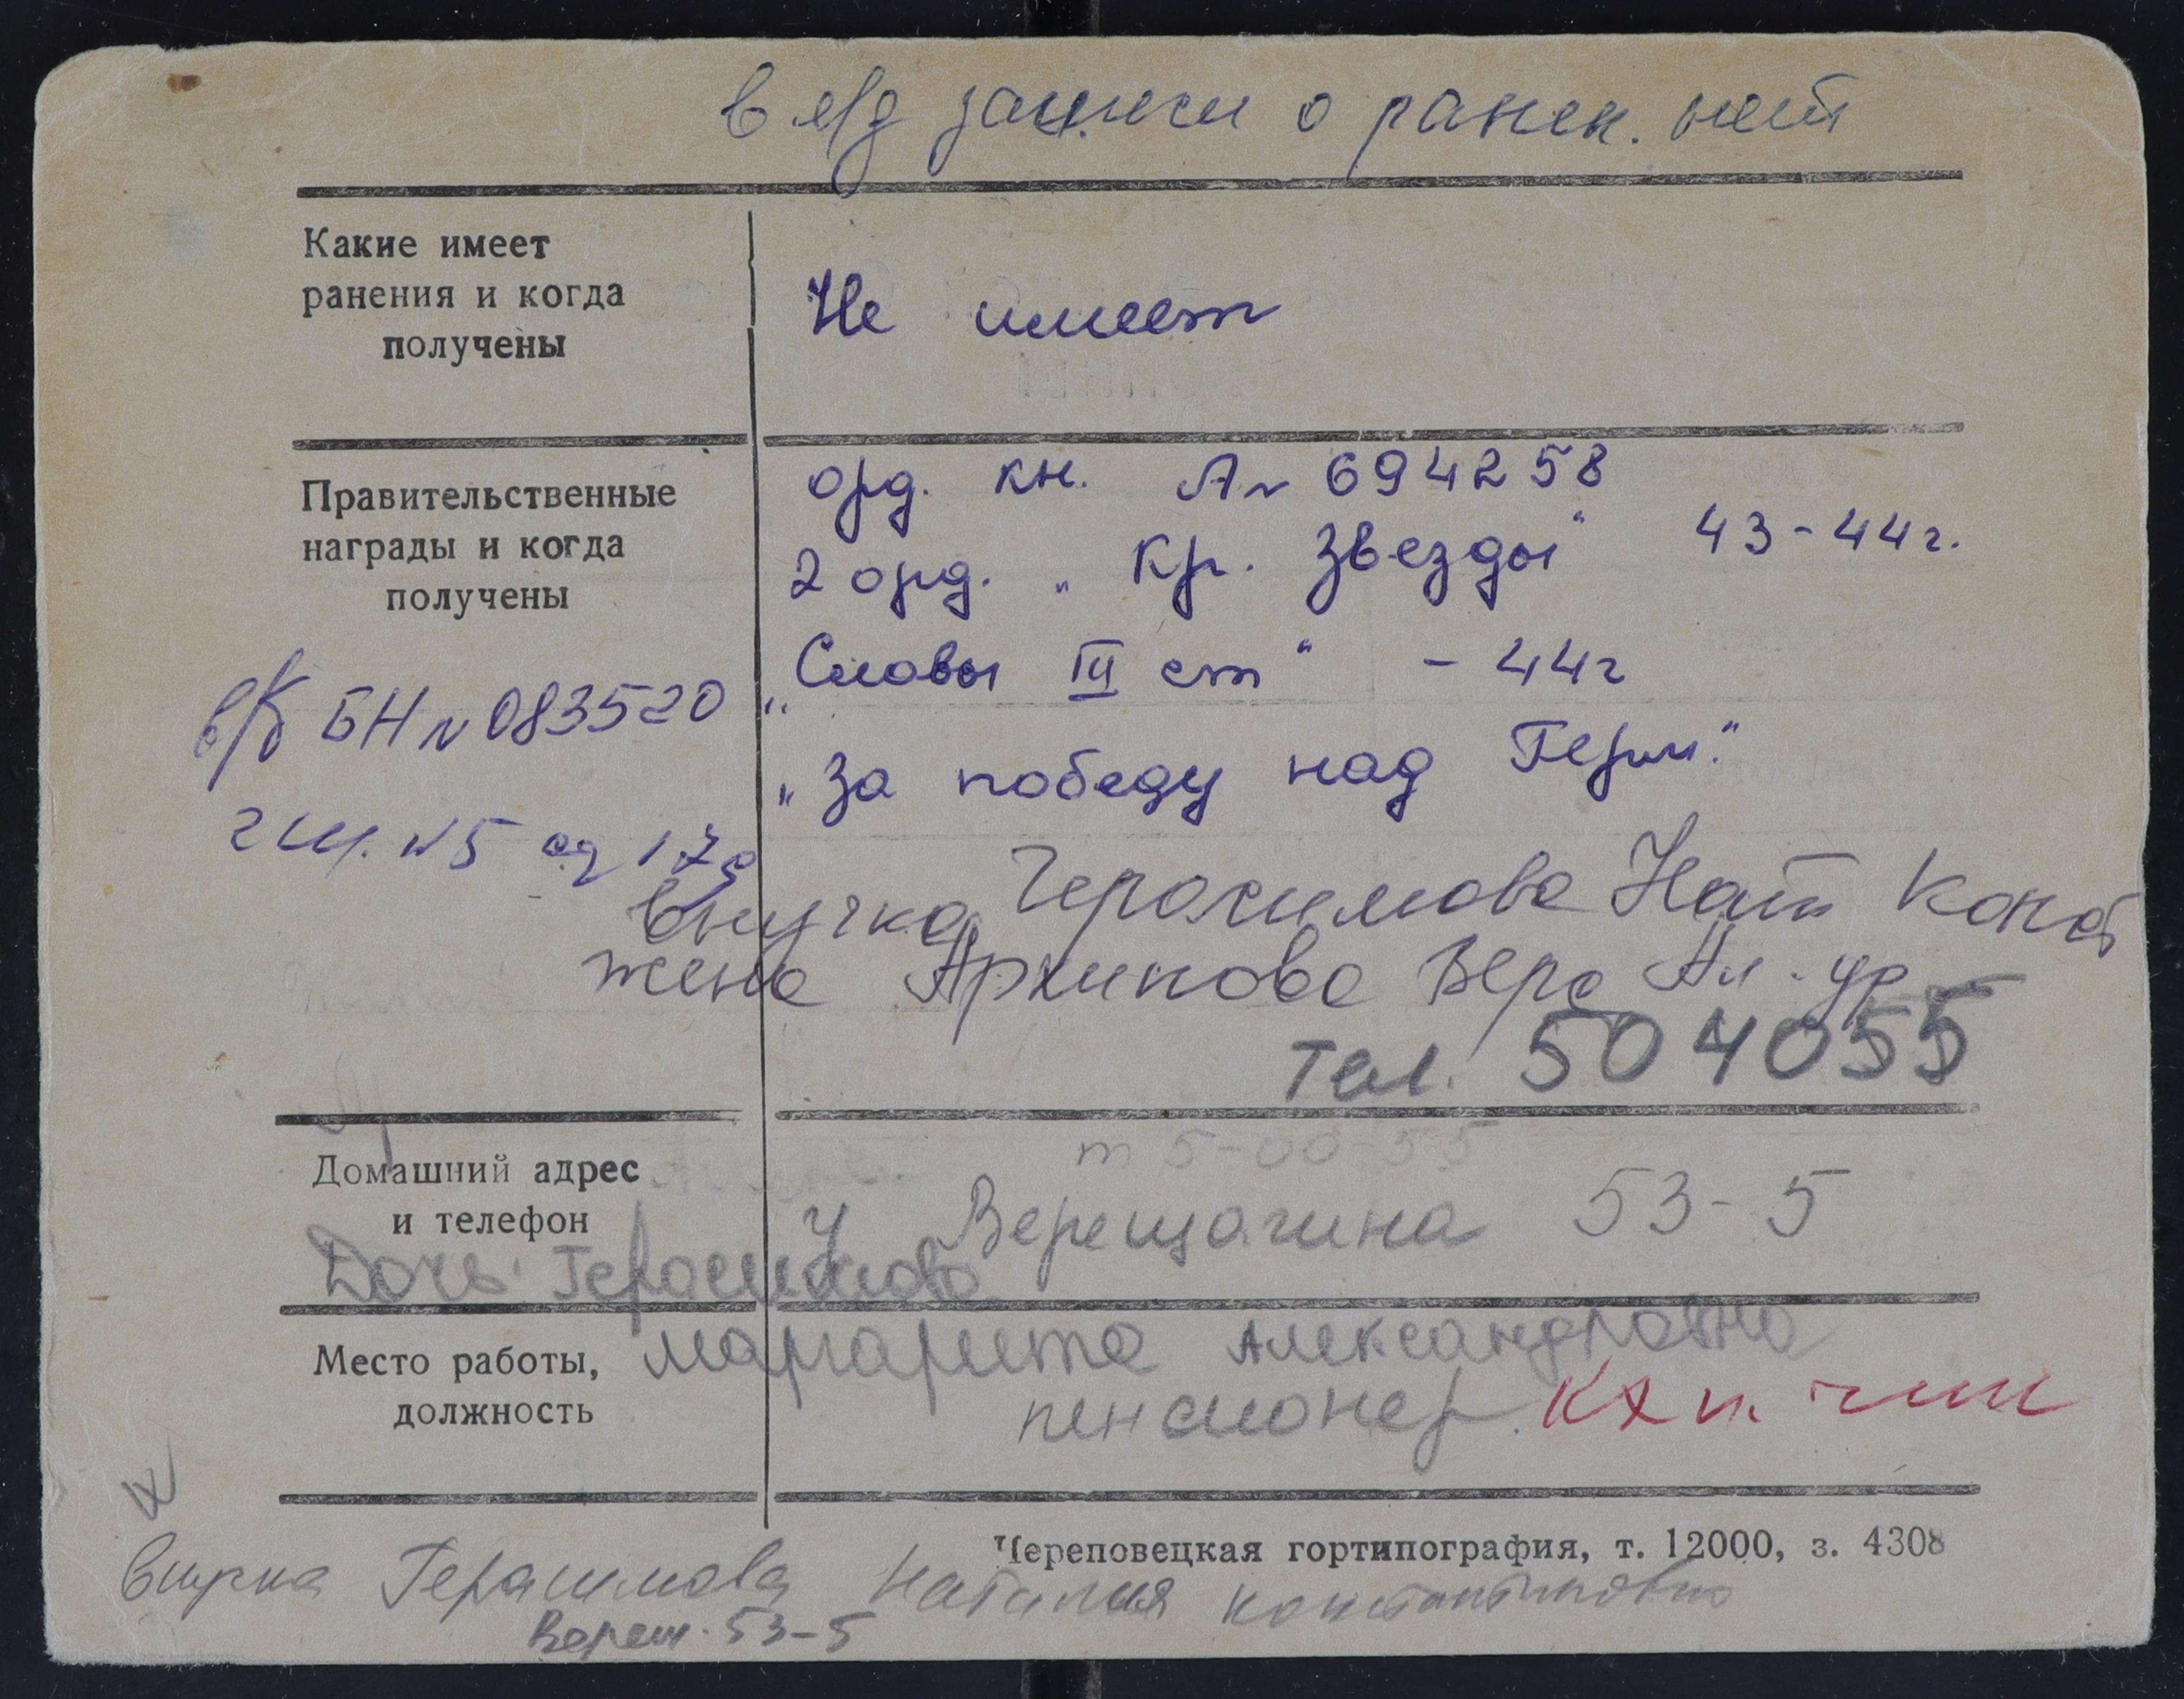 в л/д записи о ранен. нет
Какие имеет
ранения и когда
получены
Не имеет
Правительственные
награды и когда
получены
орд. кн. А № 694258
2 орд. „Кр. Звезды" 43-44г.
„Славы III ст" - 44г
„За победу над Герм."
в/б БН № 083520
внучка Герасимова Нат Конст
жена Архипова Вера Ал-др
тел. 504055
Домашний адрес
и телефон
т 5-00-55
Верещагина 53-5
Дочь Герасимова
Маргарита Александровна
Место работы,
должность
пенсионер
Череповецкая гортипография, т. 12000, з. 4308
Внучка Герасимова Наталия Константиновна
Верещ. 53-5